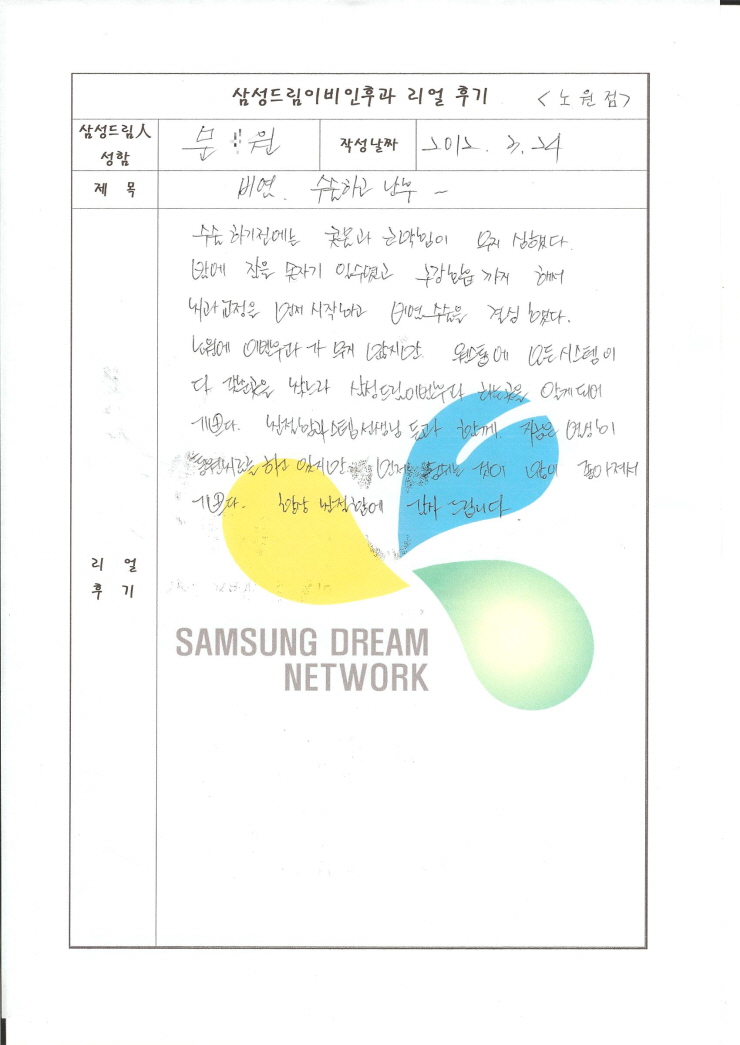 삼성드림이비인후과 리얼 후기 <노원점>
삼성드림人
성함
문 원
작성날짜
2012. 3. 24
제 목
비염. 수술하고 난후 ~
수술 하기전에는 콧물과 코막힘이 무지 심했다.
밤에 잠을 못자기 일수였고 구강호흡 까지 해서
먼저 시작하고 비염수술을 결심 했다.
노원에 이비인후과 가 무지 많지만. 원스톱에 모든시스템이
다 갖춘곳을 찾느라 삼성드림이비인후과 하는곳을 알게되어
기쁘다. 친절함과 스텝선생님 들과 함께. 지금은 열심히
통원치료를 하고 있지만 먼저 점이 많이 좋아져서
기쁘다. 항상 친절함에 감사 드립니다.
리 얼
후 기
SAMSUNG DREAM
NETWORK